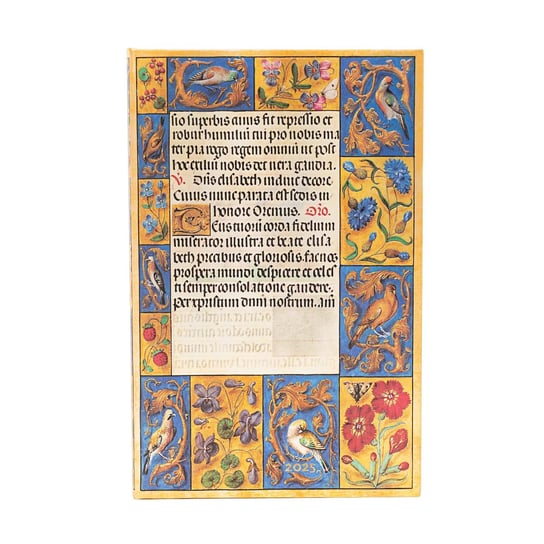 sio superbis cuius fit repressio et
robur humiliũ cui pro nobis ma
ter pia rogo regem omniũ ut post
hoc exiliũ nobis det uera gaudia.
V. Diua elisabeth in diue decore.
Cuius nunc parata est sedis in
honore Oremus. Oro.
Deus tuorũ corda fidelium
miserator illustra et beate elisa
beth precibus et gloriosis. fac nos
prospera mundi despicere et celes
ti semper consolatione gaudere.
Per xpistum dnm nostrum. am
2025